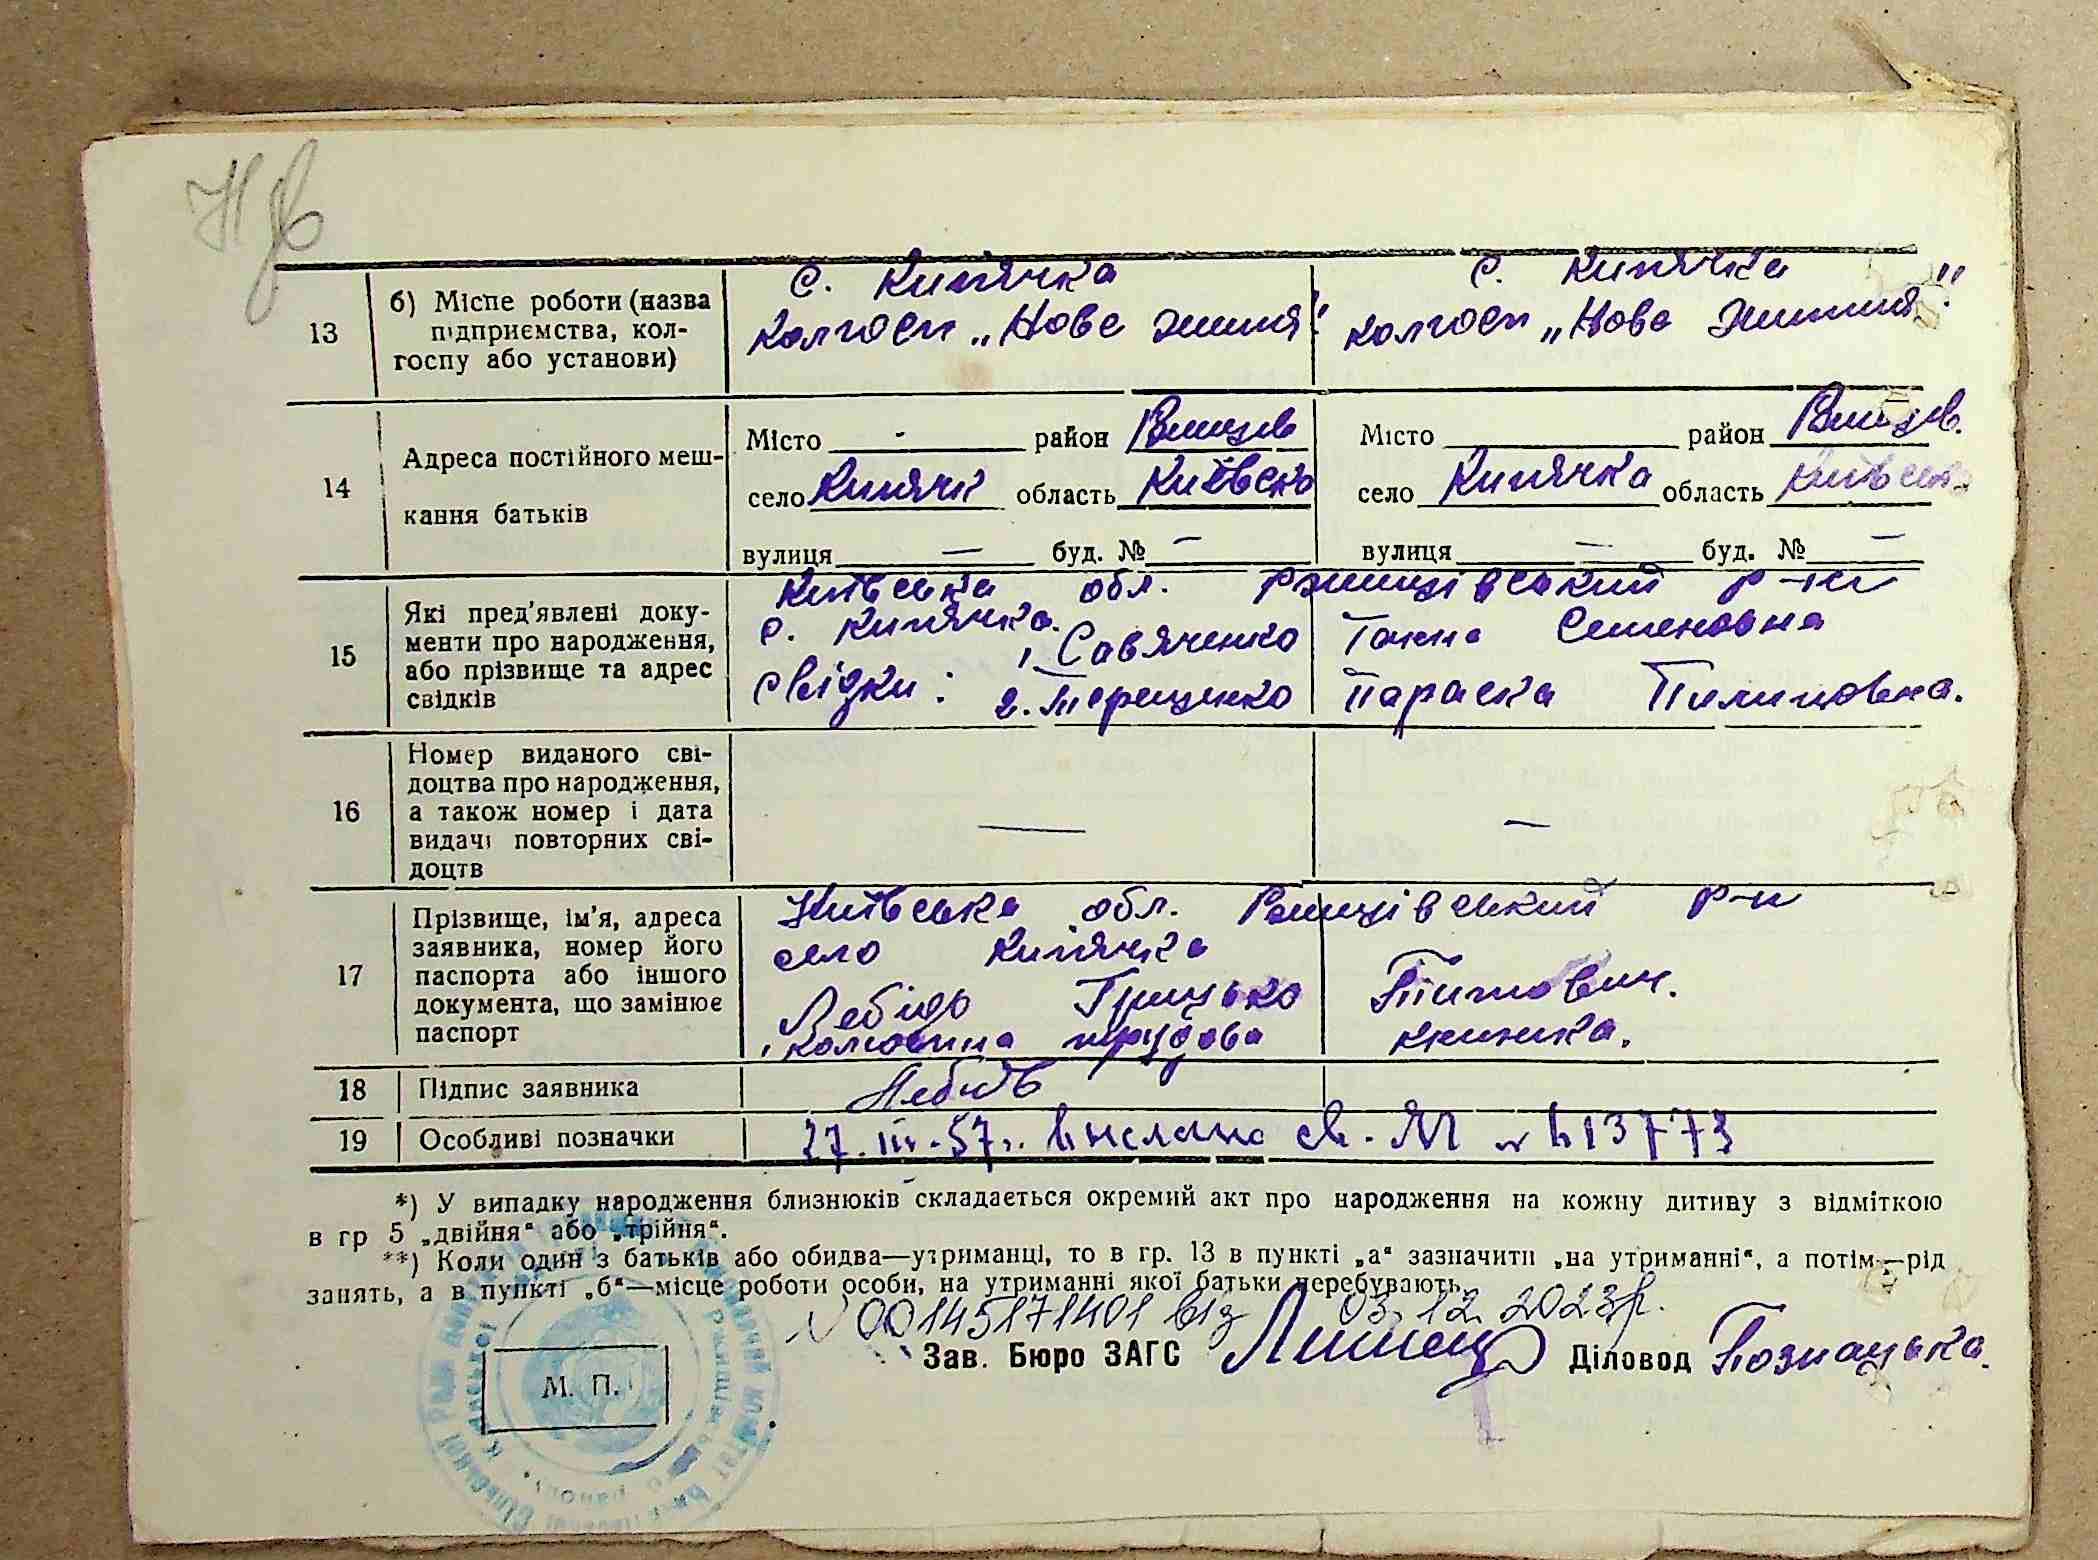 Нв
13 б) Місце роботи (назва
підприємства, кол-
госпу або установи)
с. Кип'ячка
колгосп „Нове життя"
с. Кип'ячка
колгосп „Нове життя"
14 Адреса постійного меш-
кання батьків
Місто - район Ржищів
село Кип'ячк область Київськ
вулиця — буд. № —
Місто район Ржищів.
село Кип'ячка область Київськ
вулиця — буд. № —
15 Які пред'явлені доку-
менти про народження,
або прізвище та адрес
свідків
Київська обл. Ржищівський р-н
с. Кип'ячка.
1. Савяченко Семеновна
свідки: 2. Терещенко Параска Пилиповна.
16 Номер виданого сві-
доцтва про народження,
а також номер і дата
видачі повторних сві-
доцтв
— —
17 Прізвище, ім'я, адреса
заявника, номер його
паспорта або іншого
документа, що замінює
паспорт
Київська обл. Ржищівський р-н
село Кип'ячка
Лебідь Грицько Титович.
трудова книжка.
18 Підпис заявника Лебідь
19 Особливі позначки 27.III-57г. выслано св.
*) У випадку народження близнюків складається окремий акт про народження на кожну дитину з відміткою
в гр 5 „двійня" або „трійня".
**) Коли один з батьків або обидва—утриманці, то в гр. 13 в пункті „а" зазначити „на утриманні", а потім—рід
занять, а в пункті „б"—місце роботи особи, на утриманні якої батьки перебувають.
№ 00145171401 від 03.12.2023р.
Зав. Бюро ЗАГС Діловод Познацька.
М. П.